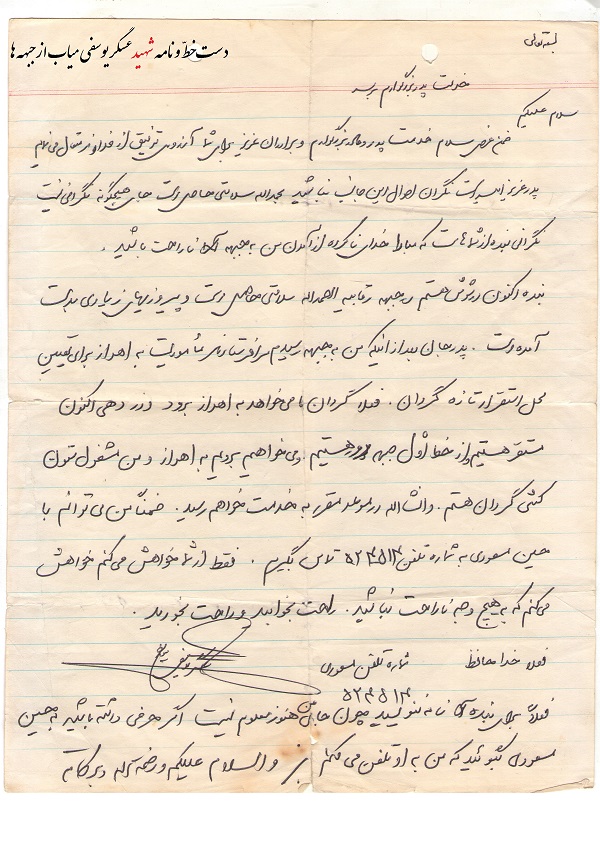 دست خط و نامه شهید عسکر یوسفی میاب از جبهه ها
بسمه تعالی
خدمت پدر بزرگوارم برسد
سلام علیکم
ضمن عرض سلام خدمت پدر و مادر بزرگوارم و برادران عزیز برای شما آرزوی توفیق از خداوند متعال می نمایم
پدر عزیز امید است نگران احوال این جانب نباشید بحمدالله سلامتی حاصل است جای هیچگونه نگرانی نیست
نگرانی بنده از شماست که مبادا خدای ناکرده از آمدن من به جبهه ناراحت باشید .
بنده اکنون در شوش هستم و جبهه رقابیه الحمدالله سلامتی حاصل است و پیروزیهای زیادی بدست
آمده است . پدر جان بعد از اینکه من به جبهه رسیدم مرا فرستادند مأموریت به اهواز برای تعیین
محل استقرار تازه گردان . فعلا گردان ما می خواهد به اهواز برود و در دهی اکنون
مستقر هستیم و از خط اول جبهه هستیم و می خواهیم برویم به اهواز و من مشغول ستون
کشی گردان هستم . و انشاالله در موعد مقرر به خدمت خواهم رسید . ضمناً من می توانم با
حسین مسعودی به شماره تلفن ۵۲۳۵۱۳ تماس بگیرم . فقط از شما خواهش می کنم خواهش
می کنم که به هیچ وجه ناراحت نباشید . راحت بخوابید و راحت بخورید .
فعلا خدا حافظ شماره تلفن مسعودی
۵۲۳۵۱۳
فعلاً برای بنده نامه ننویسید چون جای من هنوز معلوم نیست اگر حرفی داشته باشید به حسین
مسعودی بگوئید که من به او تلفن می کنم و السلام علیکم و رحمة الله و برکاته